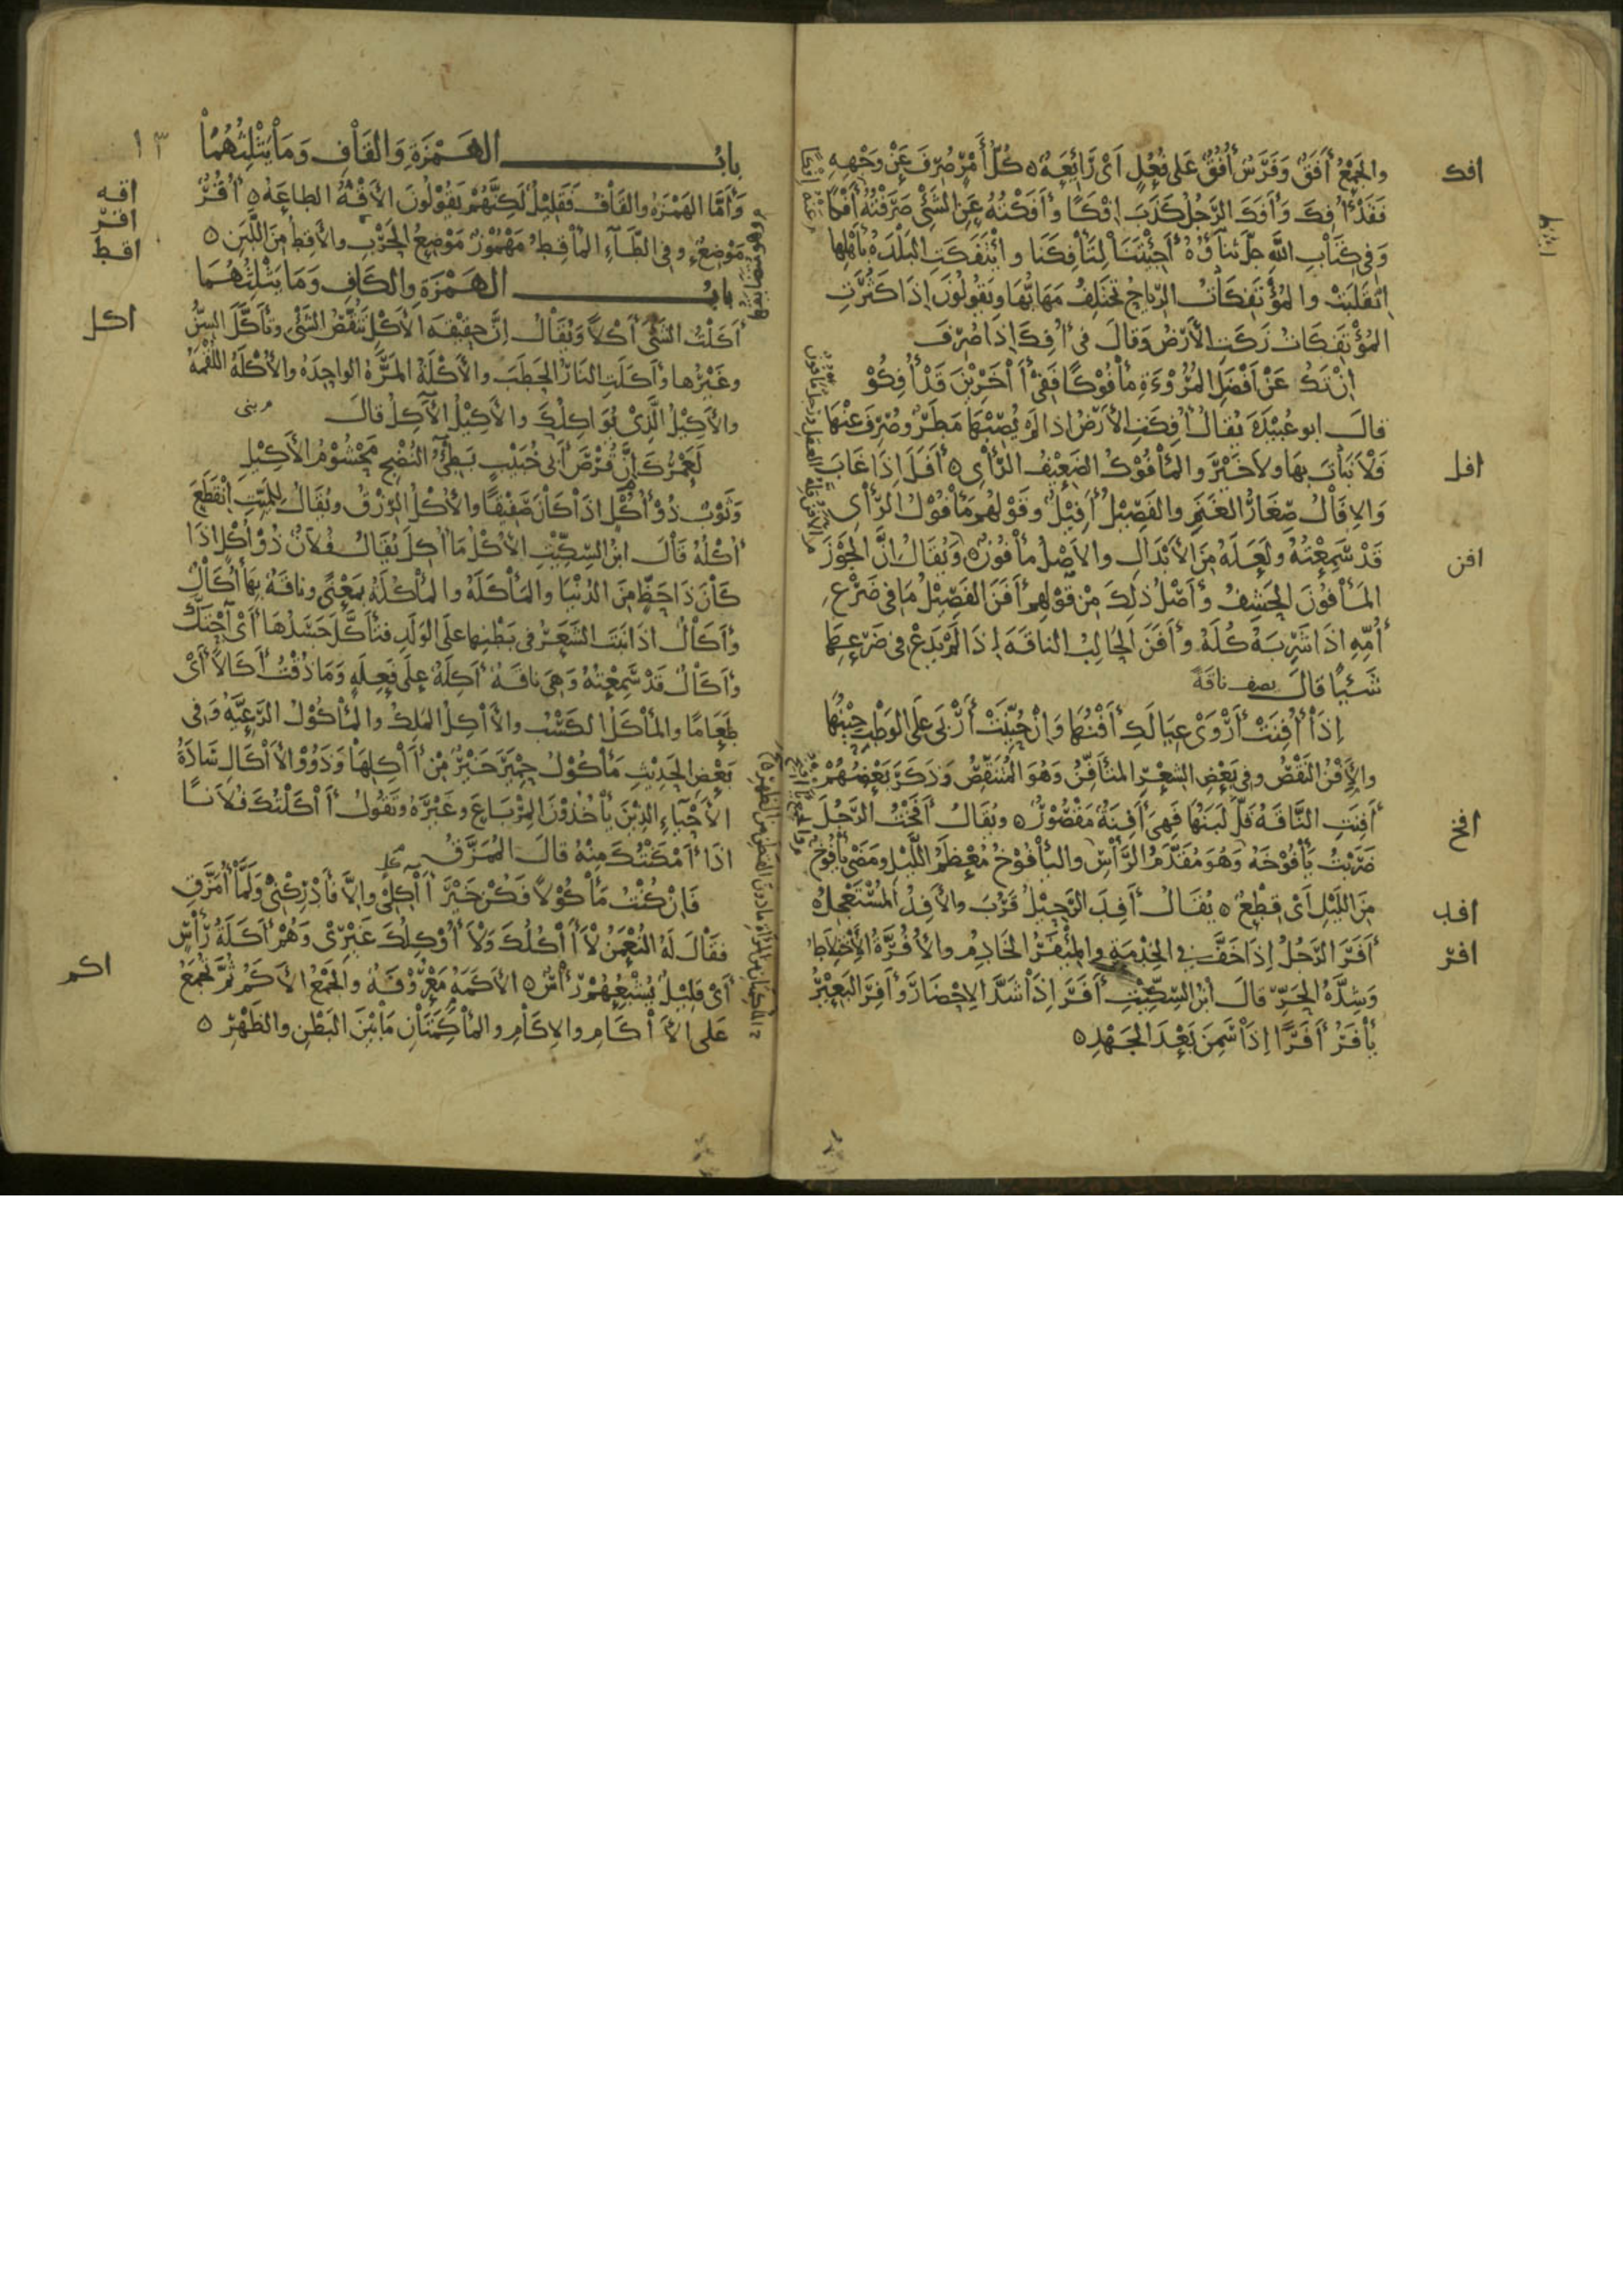 والجمع أَفَق وفرس أُفُق على فُعُل اى رايعة ه كل أمر صرف عن وجهه
افك
فقد أُفِك وأَفَك الرجل كذب افكا وأفكته عن الشئ صرفته أفكا
وفى كتاب الله جل ثناؤه أجئتنا لتأفكنا وائتفكت البلدة بأهلها
انقلبت والمؤتفكات الرياح تختلف مهابها ويقولون اذا كثرت
المؤتفكات زكت الأرض وقال فى أفك اذا صرف
ان تك عن أفضل المروءة مأفوكا ففى آخرين قد أفكوا
قال ابو عبيدة يقال أفكت الأرض اذا لم يصبها مطر وصرف عنها
فلا نبات بها ولا خير والمأفوك الضعيف الرأى ه أفل إذا غاب
افل
والإفال صغار الغنم والفصيل أفيل وقولهم مأفول الرأى
قد سمعته ولعله من الأبدال والأصل مأفون ه ويقال ان الجوز
افن
المأفون الحشف وأصل ذلك من قولهم أفن الفصيل ما فى ضرع
أمه اذا شربه كله وأفن الحالب الناقة إذا لم يدع فى ضرعها
شيئا قال يصف ناقة
إذا أُفنت أروى عيالك أفنها وإن حُيّنت أربى على الوطب حينها
والأفن النقص وفى بعض الشعر المتأفن وهو المتنقص وذكر بعضهم
أفنت الناقة قل لبنها فهى أفنة مقصور ه ويقال أفخت الرجل
افخ
ضربت يأفوخه وهو مقدم الرأس واليأفوخ معظم الليل ومضى يأفوخ
من الليل اى قطع ه يقال أفد الرحيل قرب والأفد المستعجل ه
افد
أفر الرجل إذا خف فى الخدمة والمئفر الخادم والأفرة الأختلاط
افر
وشدة الحر قال ابن السكيت أفر إذا شد الإحضار وأفر البعير
يأفر أفرا إذا سمن بعد الجهد ه
١٣
باب الهمزة والقاف وما يثلثهما
وأما الهمزة والقاف فقليل لكنهم يقولون الأقه الطاعة ه أقر
اقه
اقر
موضع وفى الطاء المأقط مهموز موضع الحرب والأقط من اللبن ه
اقط
باب الهمزة والكاف وما يثلثهما
أكلت الشئ أكلا ويقال إن حقيقة الأكل تنقص الشئ وتأكل السن
اكل
وغيرها وأكلت النار الحطب والأكلة المرة الواحدة والأكلة اللقمة
والأكيل الذى يواكلك والأكيل الآكل قال
لعمرك إن قرص أبى خبيب بطئ النضج محشوم الأكيل
وثوب ذو أكل اذا كان صفيقا والأكل الرزق ويقال للميت انقطع
أكله قال ابن السكيت الأكل ما أكل يقال فلان ذو أكل اذا
كان ذا حظ من الدنيا والمأكلة والمأكلة بمعنى وناقة بها أكال
وأكال اذا نبت الشعر فى بطنها على الولد فتأكل جسدها أى احتك
وأكال قد سمعته وهى ناقة أكلة على فعلة وما ذقت أكالا أى
طعاما والمأكل الكسب والآكل الملك والمأكول الرعية وفى
بعض الحديث مأكول حمير خير من آكلها وذوو الآكال سادة
الأحياء الذين يأخذون المرباع وغيره وتقول آكلتك فلانا
اذا أمكنتك منه قال الممزق
فان كنت مأكولا فكن خير آكلى والا فأدركنى ولما أمزق
فقال له النعمن لا آكلك ولا أوكلك غيرى وهم أكلة رأس
أى قليل يشبعهم رأس ه الأكمة معروفة والجمع الأكم ثم تجمع
اكم
على الآكام والإكام والمأكمتان ما بين البطن والظهر ه